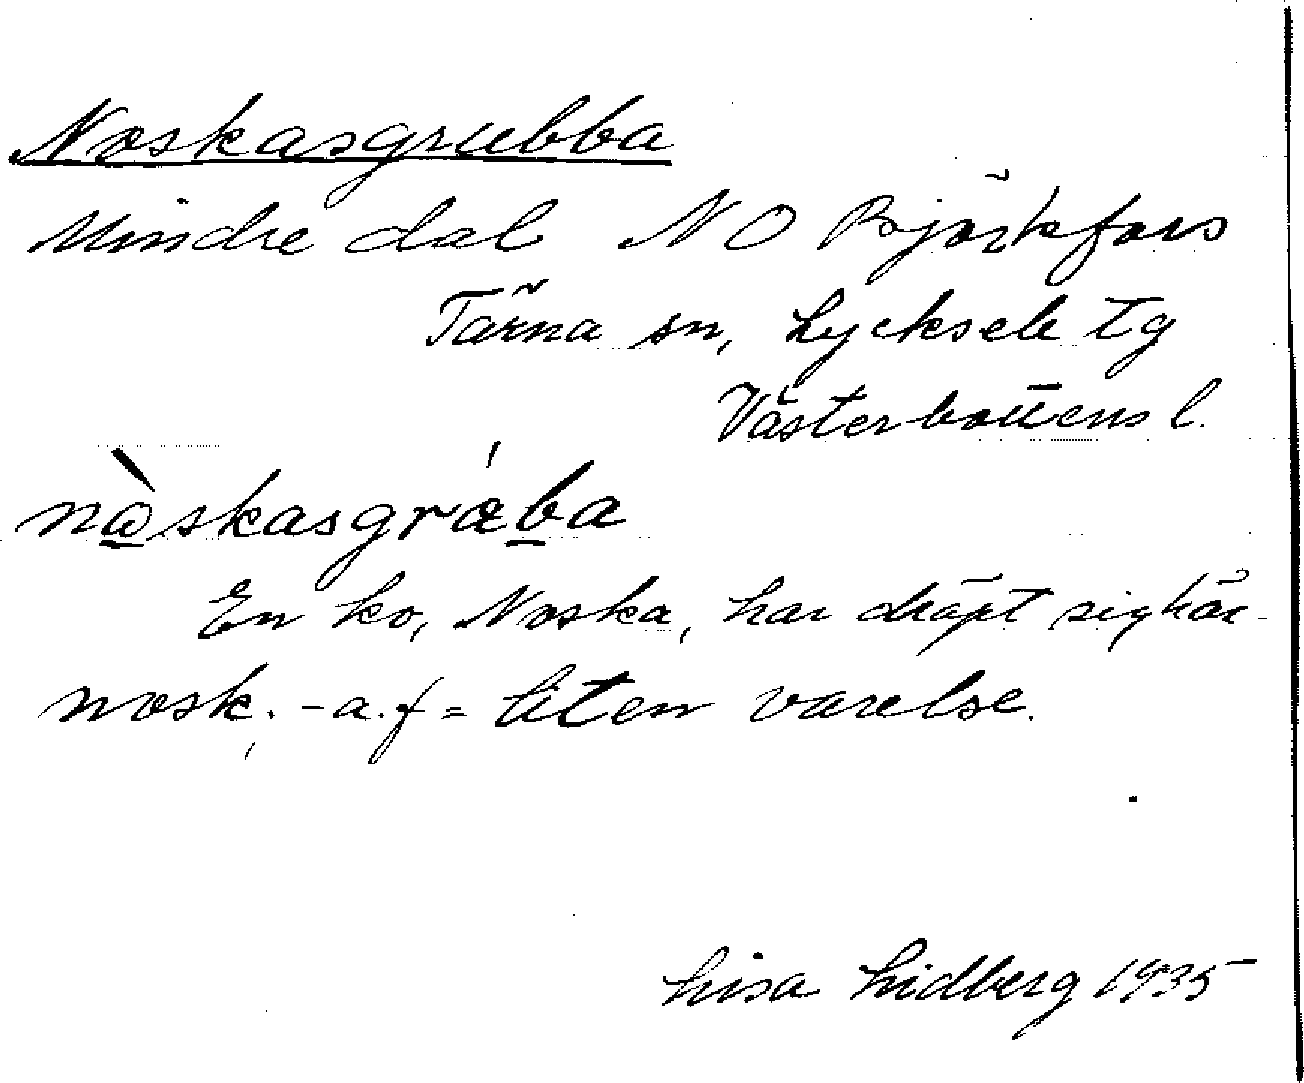 Noskasgrubba
Mindre dal NO Björkfors
Tärna sn, Lycksele tg
Västerbottens l.
nàskasgræba
En ko, Noska, har dräpt sig här
nosk. -a. f = liten varelse.
Lisa Lidberg 1935